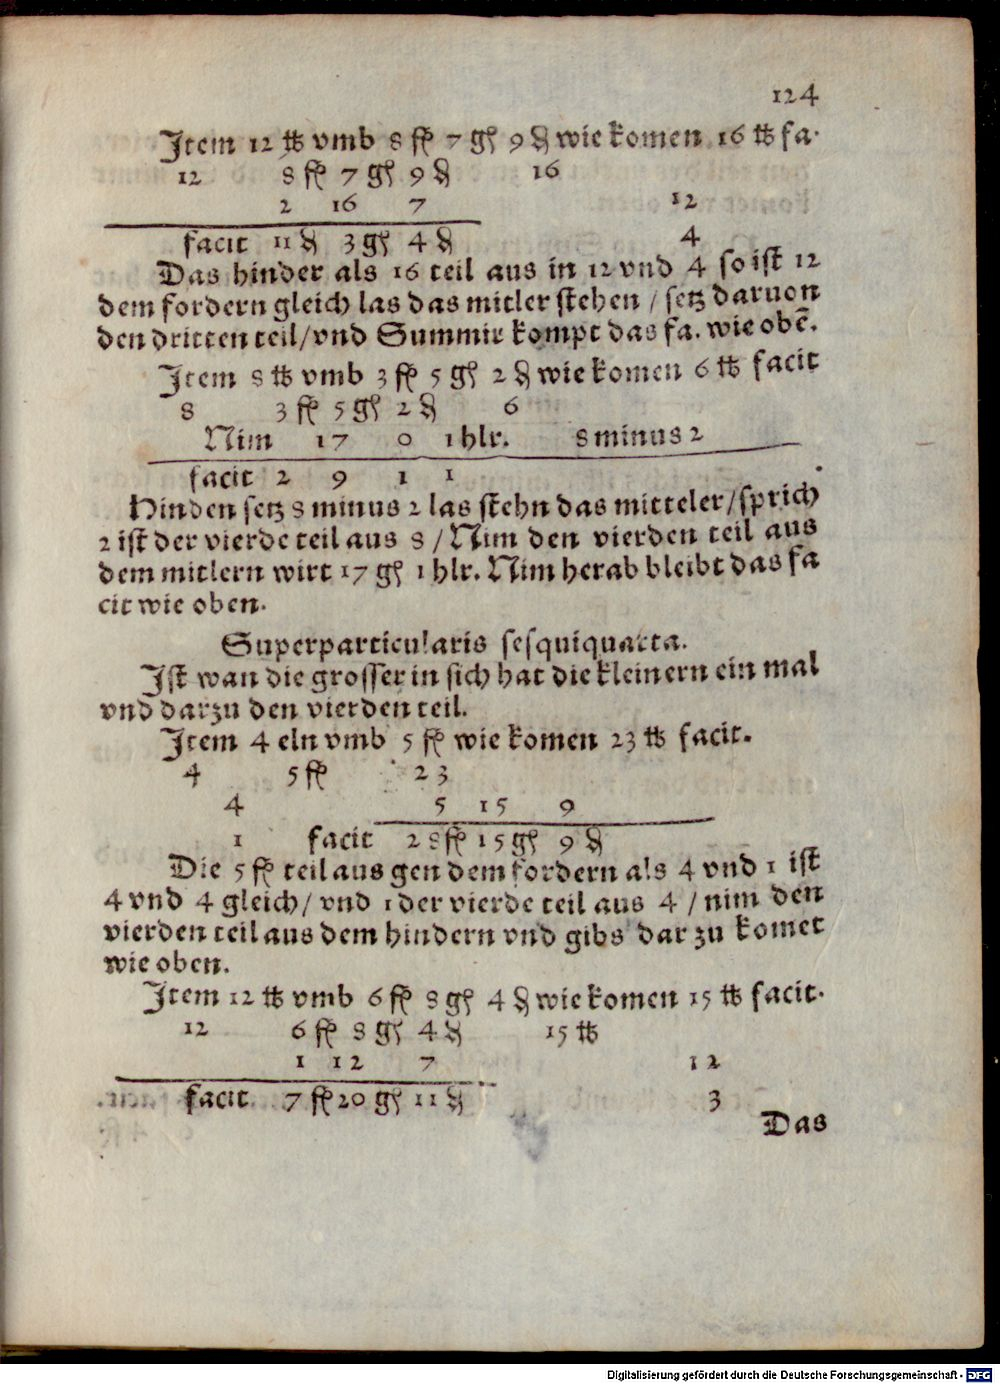 124
Item 12 ℔ vmb 8 fl 7 gl 9 ₰ wie komen 16 ℔ fa.
12 8 fl 7 gl 9 ₰ 16
2 16 7 12
facit 11 ₰ 3 gl 4 ₰ 4
Das hinder als 16 teil aus in 12 vnd 4 so ist 12
dem fordern gleich las das mitler stehen / setz daruon
den dritten teil/vnd Summir kompt das fa. wie obẽ.
Item 8 ℔ vmb 3 fl 5 gl 2 ₰ wie komen 6 ℔ facit
8 3 fl 5 gl 2 ₰ 6
Nim 17 0 1 hlr. 8 minus 2
facit 2 9 1 1
Hinden setz 8 minus 2 las stehn das mitteler/sprich
2 ist der vierde teil aus 8 / Nim den vierden teil aus
dem mitlern wirt 17 gl 1 hlr. Nim herab bleibt das fa
cit wie oben.
Superparticularis sesquiquarta.
Ist wan die grosser in sich hat die kleinern ein mal
vnd darzu den vierden teil.
Item 4 eln vmb 5 fl wie komen 23 ℔ facit.
4 5 fl 23
4 5 15 9
1 facit 28 fl 15 gl 9 ₰
Die 5 fl teil aus gen dem fordern als 4 vnd 1 ist
4 vnd 4 gleich/ vnd 1 der vierde teil aus 4 / nim den
vierden teil aus dem hindern vnd gibs dar zu komet
wie oben.
Item 12 ℔ vmb 6 fl 8 gl 4 ₰ wie komen 15 ℔ facit.
12 6 fl 8 gl 4 ₰ 15 ℔
1 12 7 12
facit 7 fl 20 gl 11 ₰ 3
Das
Digitalisierung gefördert durch die Deutsche Forschungsgemeinschaft - DFG